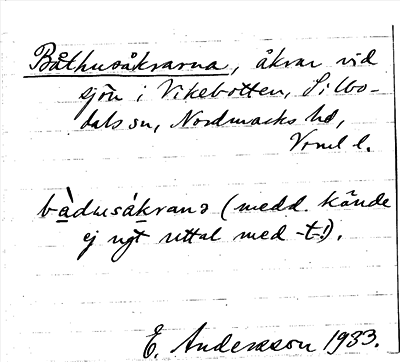 Båthusåkrarna, åkrar vid
sjön i Vikebotten, Silbo-
dals sn, Nordmarks hd,
Vrml l.
bàdusákrana (medd. kände
ej ngt uttal med -t-!).
E. Andersson 1933.